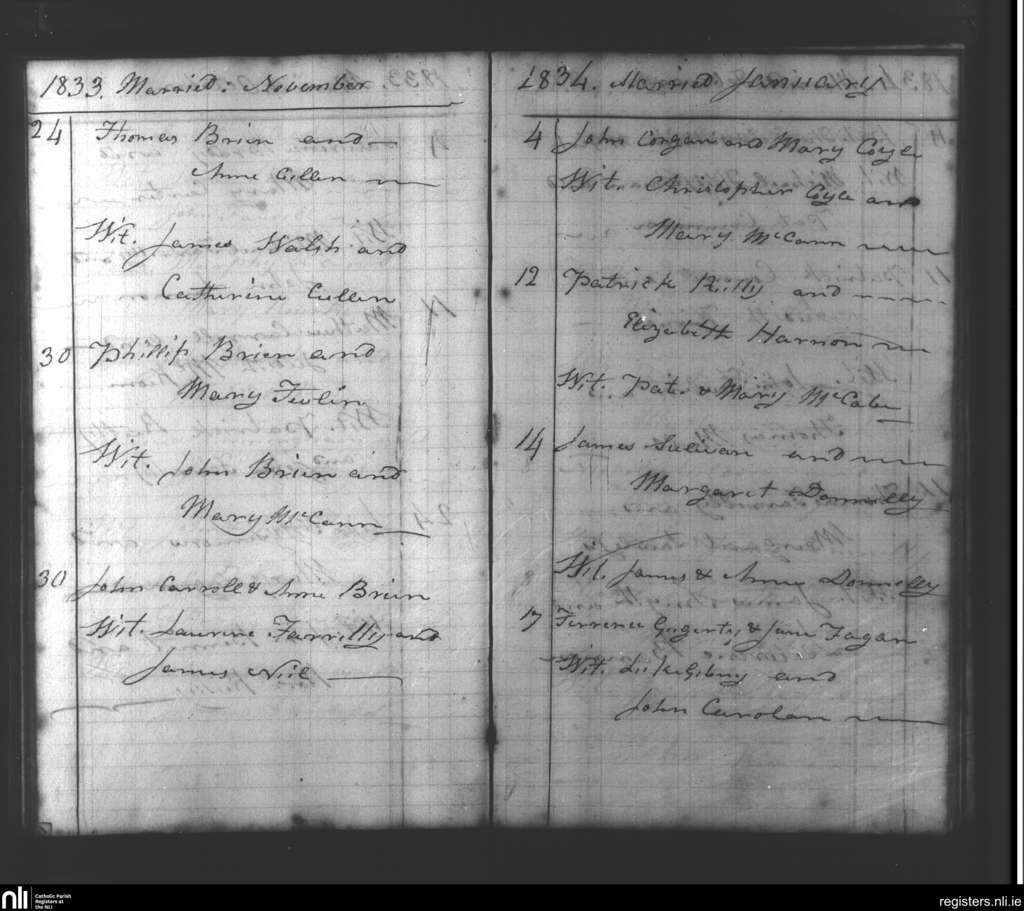 1833. Married. November
24 Thomas Brien and
Anne Cullen
Wit. James Walsh and
Catherine Cullen
30 Phillip Brien and
Mary
Wit. John Brien and
Mary McCann
30 John Carroll & Anne Brien
Wit. Laurine Farrilly and
James Niel
1834. Married January
4 John Corgan and Mary Coyle
Wit. Christopher Coyle and
Mary McCann
12 Patrick Rilly and
Elizabeth Harnon
Wit. Pat. & Mary McCabe
14 James Sulivan and
Margaret Donnelly
Wit. James & Anne Donnelly
17 Terrence & Jane Fagan
Wit. Luke and
John Carolan
nli
Catholic Parish
Registers at
the NLI
registers.nli.ie